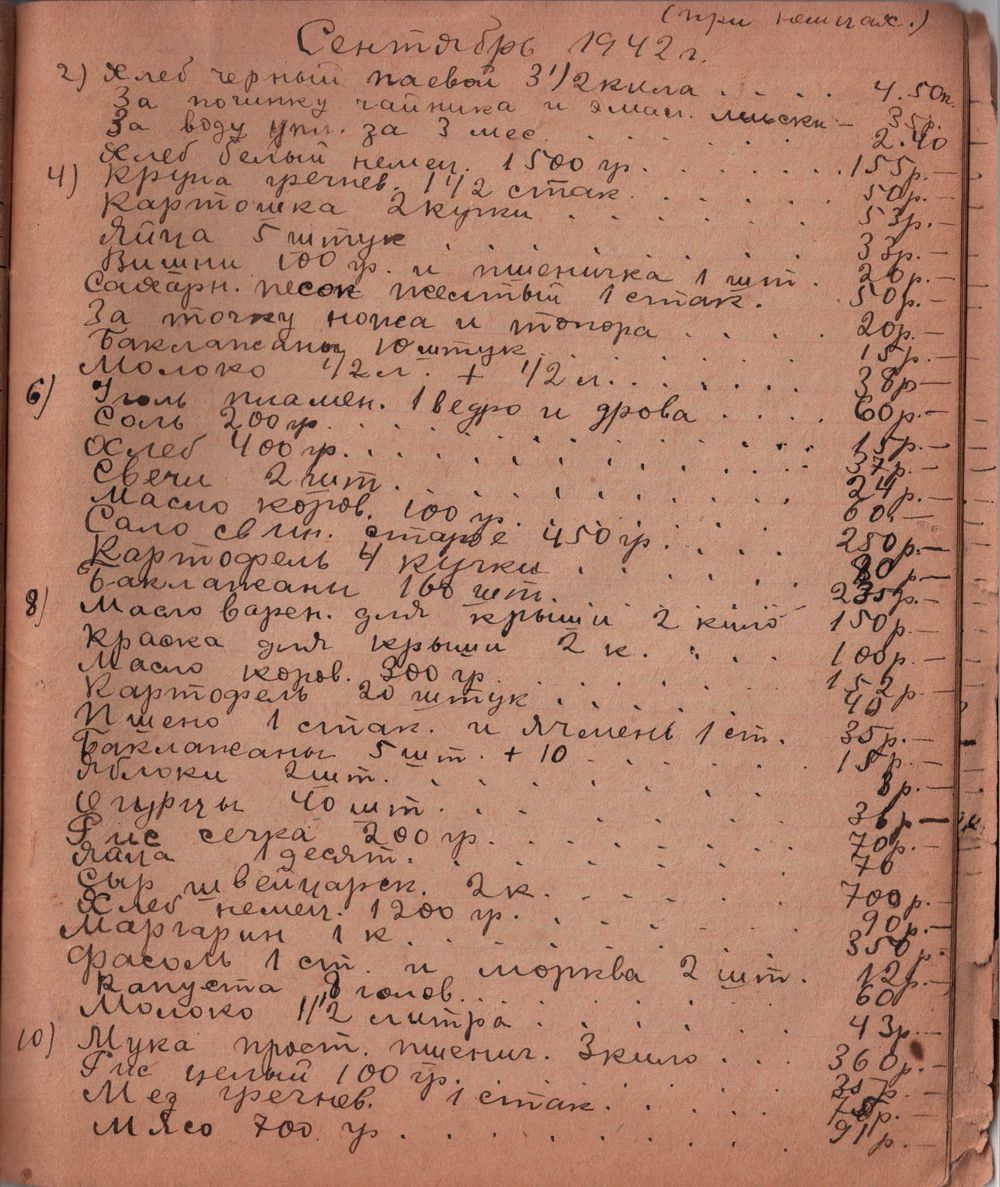 (при немцах.)
Сентябрь 1942 г.
2) Хлеб черный паевой 3 1/2 кила . . . . 4.50 к.
За починку чайника и эмал. миски – 35 р.
За воду упл. за 3 мес . . . . . . 2.40
Хлеб белый немец. 1500 гр. . . . . . . 155 р. –
4) Крупа гречнев. 1 1/2 стак. . . . . . 50 р. –
Картошка 2 кучки . . . . . . 53 р. –
Яйца 5 штук . . . . . . 33 р. –
Вишни 100 гр. и пшеничка 1 шт. 26 р. –
Сахарн. песок желтый 1 стак. . 50 р. –
За точку ножа и топора . . . . 20 р. –
Баклажаны 10 штук . . . . . . 15 р. –
Молоко 1/2 л. + 1/2 л. . . . . . . 38 р –
6) Уголь пламен. 1 ведро и дрова . . . . 60 р. –
Соль 200 гр. . . . . . . . 15 р. –
Хлеб 400 гр. . . . . . . . 37 р. –
Свечи 2 шт. . . . . . . 24 р. –
Масло коров. 100 гр. . . . . . 60 –
Сало свин. старое 450 гр. . . . . 250 р. –
Картофель 4 кучки . . . . . 80 –
Баклажани 160 шт. . . . . . р. –
8) Масло варен. для крыши 2 кило 150 р. –
Краска для крыши 2 к. . . . 100 р. –
Масло коров. 300 гр. . . . . . 152 р.
Картофель 20 штук . . . . . 40 –
Пшено 1 стак. и ячмень 1 ст. 35 р. –
Баклажаны 5 шт. + 10 . . . . . 15 р. –
Яблоки 2 шт. . . . . . . 8 р. –
Огурцы 40 шт. . . . . . . 36 р –
Рис сечка 200 гр. . . . . . 70 р. –
Яйца 1 десят. . . . . . . 70 –
Сыр швейцарск. 2 к. . . . . . 700 р. –
Хлеб немец. 1200 гр. . . . . . 90 р. –
Маргарин 1 к. . . . . . . 350 р. –
Фасоль 1 ст. и морква 2 шт. . 12 р. –
Капуста 8 голов. . . . . . 60 –
Молоко 1 1/2 литра . . . . . . 43 р. –
10) Мука прост. пшенич. 3 кило . . . 360 р. –
Рис целый 100 гр. . . . . . 35 р. –
Мед гречнев. 1 стак. . . . . . р. –
Мясо 700 гр . . . . . . . 91 р. –